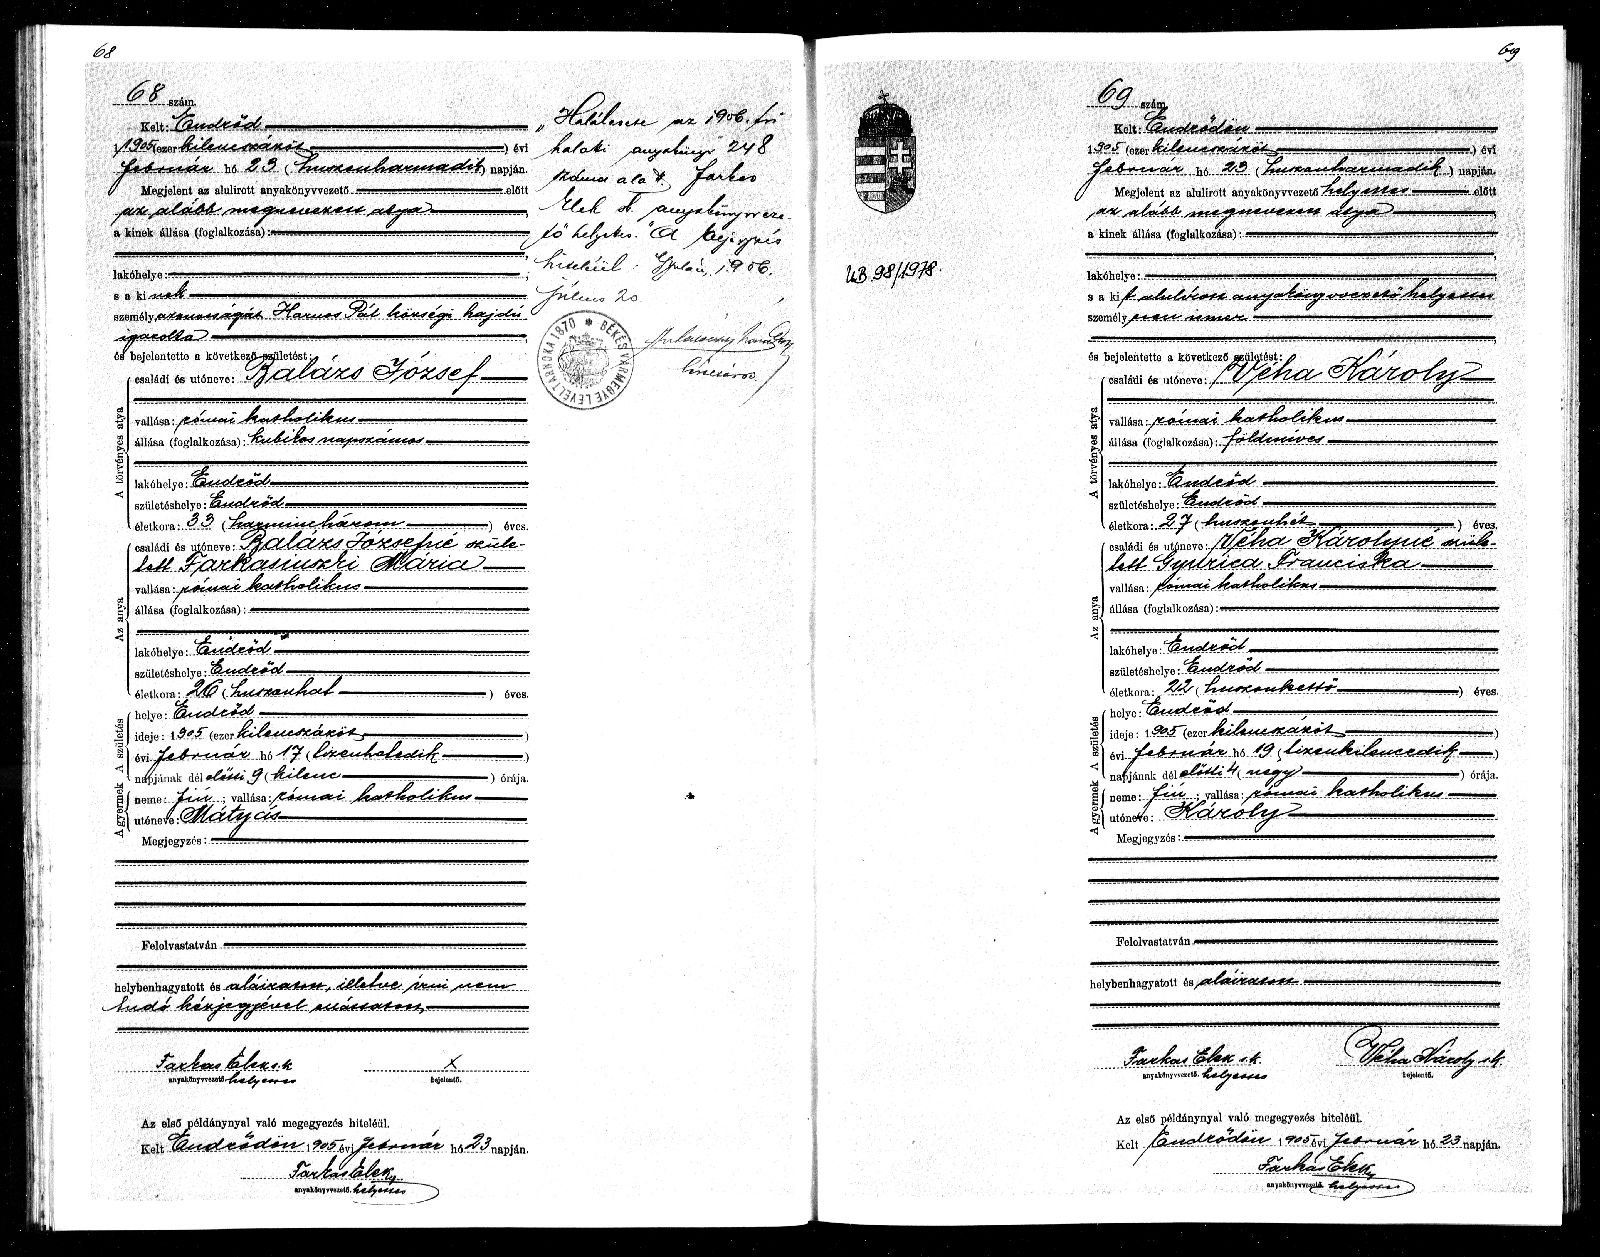 68
68 szám.
Kelt: Endrőd
1905 (ezer kilencszázöt) évi
február hó 23 (huszonharmadik) napján.
Megjelent az alulirott anyakönyvvezető előtt
az alább megnevezett atya
a kinek állása (foglalkozása):
lakóhelye:
s a kinek
személyazonosságát Harnos Pál községi hajdú
igazolta
és bejelentette a következő születést:
A törvényes atya
családi és utóneve: Balázs József
vallása: római katholikus
állása (foglalkozása): kubikos napszámos
lakóhelye: Endrőd
születéshelye: Endrőd
életkora: 33 (harminchárom) éves.
Az anya
családi és utóneve: Balázs Józsefné szüle-
tett Farkasinszki Mária
vallása: római katholikus
állása (foglalkozása):
lakóhelye: Endrőd
születéshelye: Endrőd
életkora: 26 (huszonhat) éves.
A születés
helye: Endrőd
ideje: 1905 (ezer kilencszázöt)
évi február hó 17 (tizenhetedik)
napjának dél előtti 9 (kilenc) órája.
A gyermek
neme: fiú; vallása: római katholikus
utóneve: Mátyás
Megjegyzés:
Felolvastatván
helybenhagyatott és aláiratott, illetve irni nem
tudó kézjegyével elláttatott
Farkas Elek s.k.
anyakönyvvezető helyettes
x
bejelentő.
Az első példánynyal való megegyezés hiteléül.
Kelt Endrődön 1905 évi február hó 23 napján.
Farkas Elek
anyakönyvvezető helyettes
„Halálesete az 1906. évi
halotti anyakönyv 248
száma alatt. Farkas
Elek s. anyakönyvveze-
tő helyettes." A bejegyzés
hiteléül: Gyula, 1906.
július 20
BÉKÉS VÁRMEGYE LEVÉLTÁRNOKA 1870
69
UB 98/1978.
69 szám.
Kelt: Endrődön
1905 (ezer kilencszázöt) évi
február hó 23 (huszonharmadik) napján.
Megjelent az alulirott anyakönyvvezető helyettes előtt
az alább megnevezett atya
a kinek állása (foglalkozása):
lakóhelye:
s a kit alulirott anyakönyvvezető helyettes
személyesen ismer
és bejelentette a következő születést:
A törvényes atya
családi és utóneve: Véha Károly
vallása: római katholikus
állása (foglalkozása): földmives
lakóhelye: Endrőd
születéshelye: Endrőd
életkora: 27 (huszonhét) éves.
Az anya
családi és utóneve: Véha Károlyné szüle-
tett Gyurica Franciska
vallása: római katholikus
állása (foglalkozása):
lakóhelye: Endrőd
születéshelye: Endrőd
életkora: 22 (huszonkettő) éves.
A születés
helye: Endrőd
ideje: 1905 (ezer kilencszázöt)
évi február hó 19 (tizenkilencedik)
napjának dél előtti 4 (négy) órája.
A gyermek
neme: fiú; vallása: római katholikus
utóneve: Károly
Megjegyzés:
Felolvastatván
helybenhagyatott és aláiratott
Farkas Elek s.k.
anyakönyvvezető helyettes
Véha Károly s.k.
bejelentő.
Az első példánynyal való megegyezés hiteléül.
Kelt Endrődön 1905 évi február hó 23 napján.
Farkas Elek
anyakönyvvezető helyettes